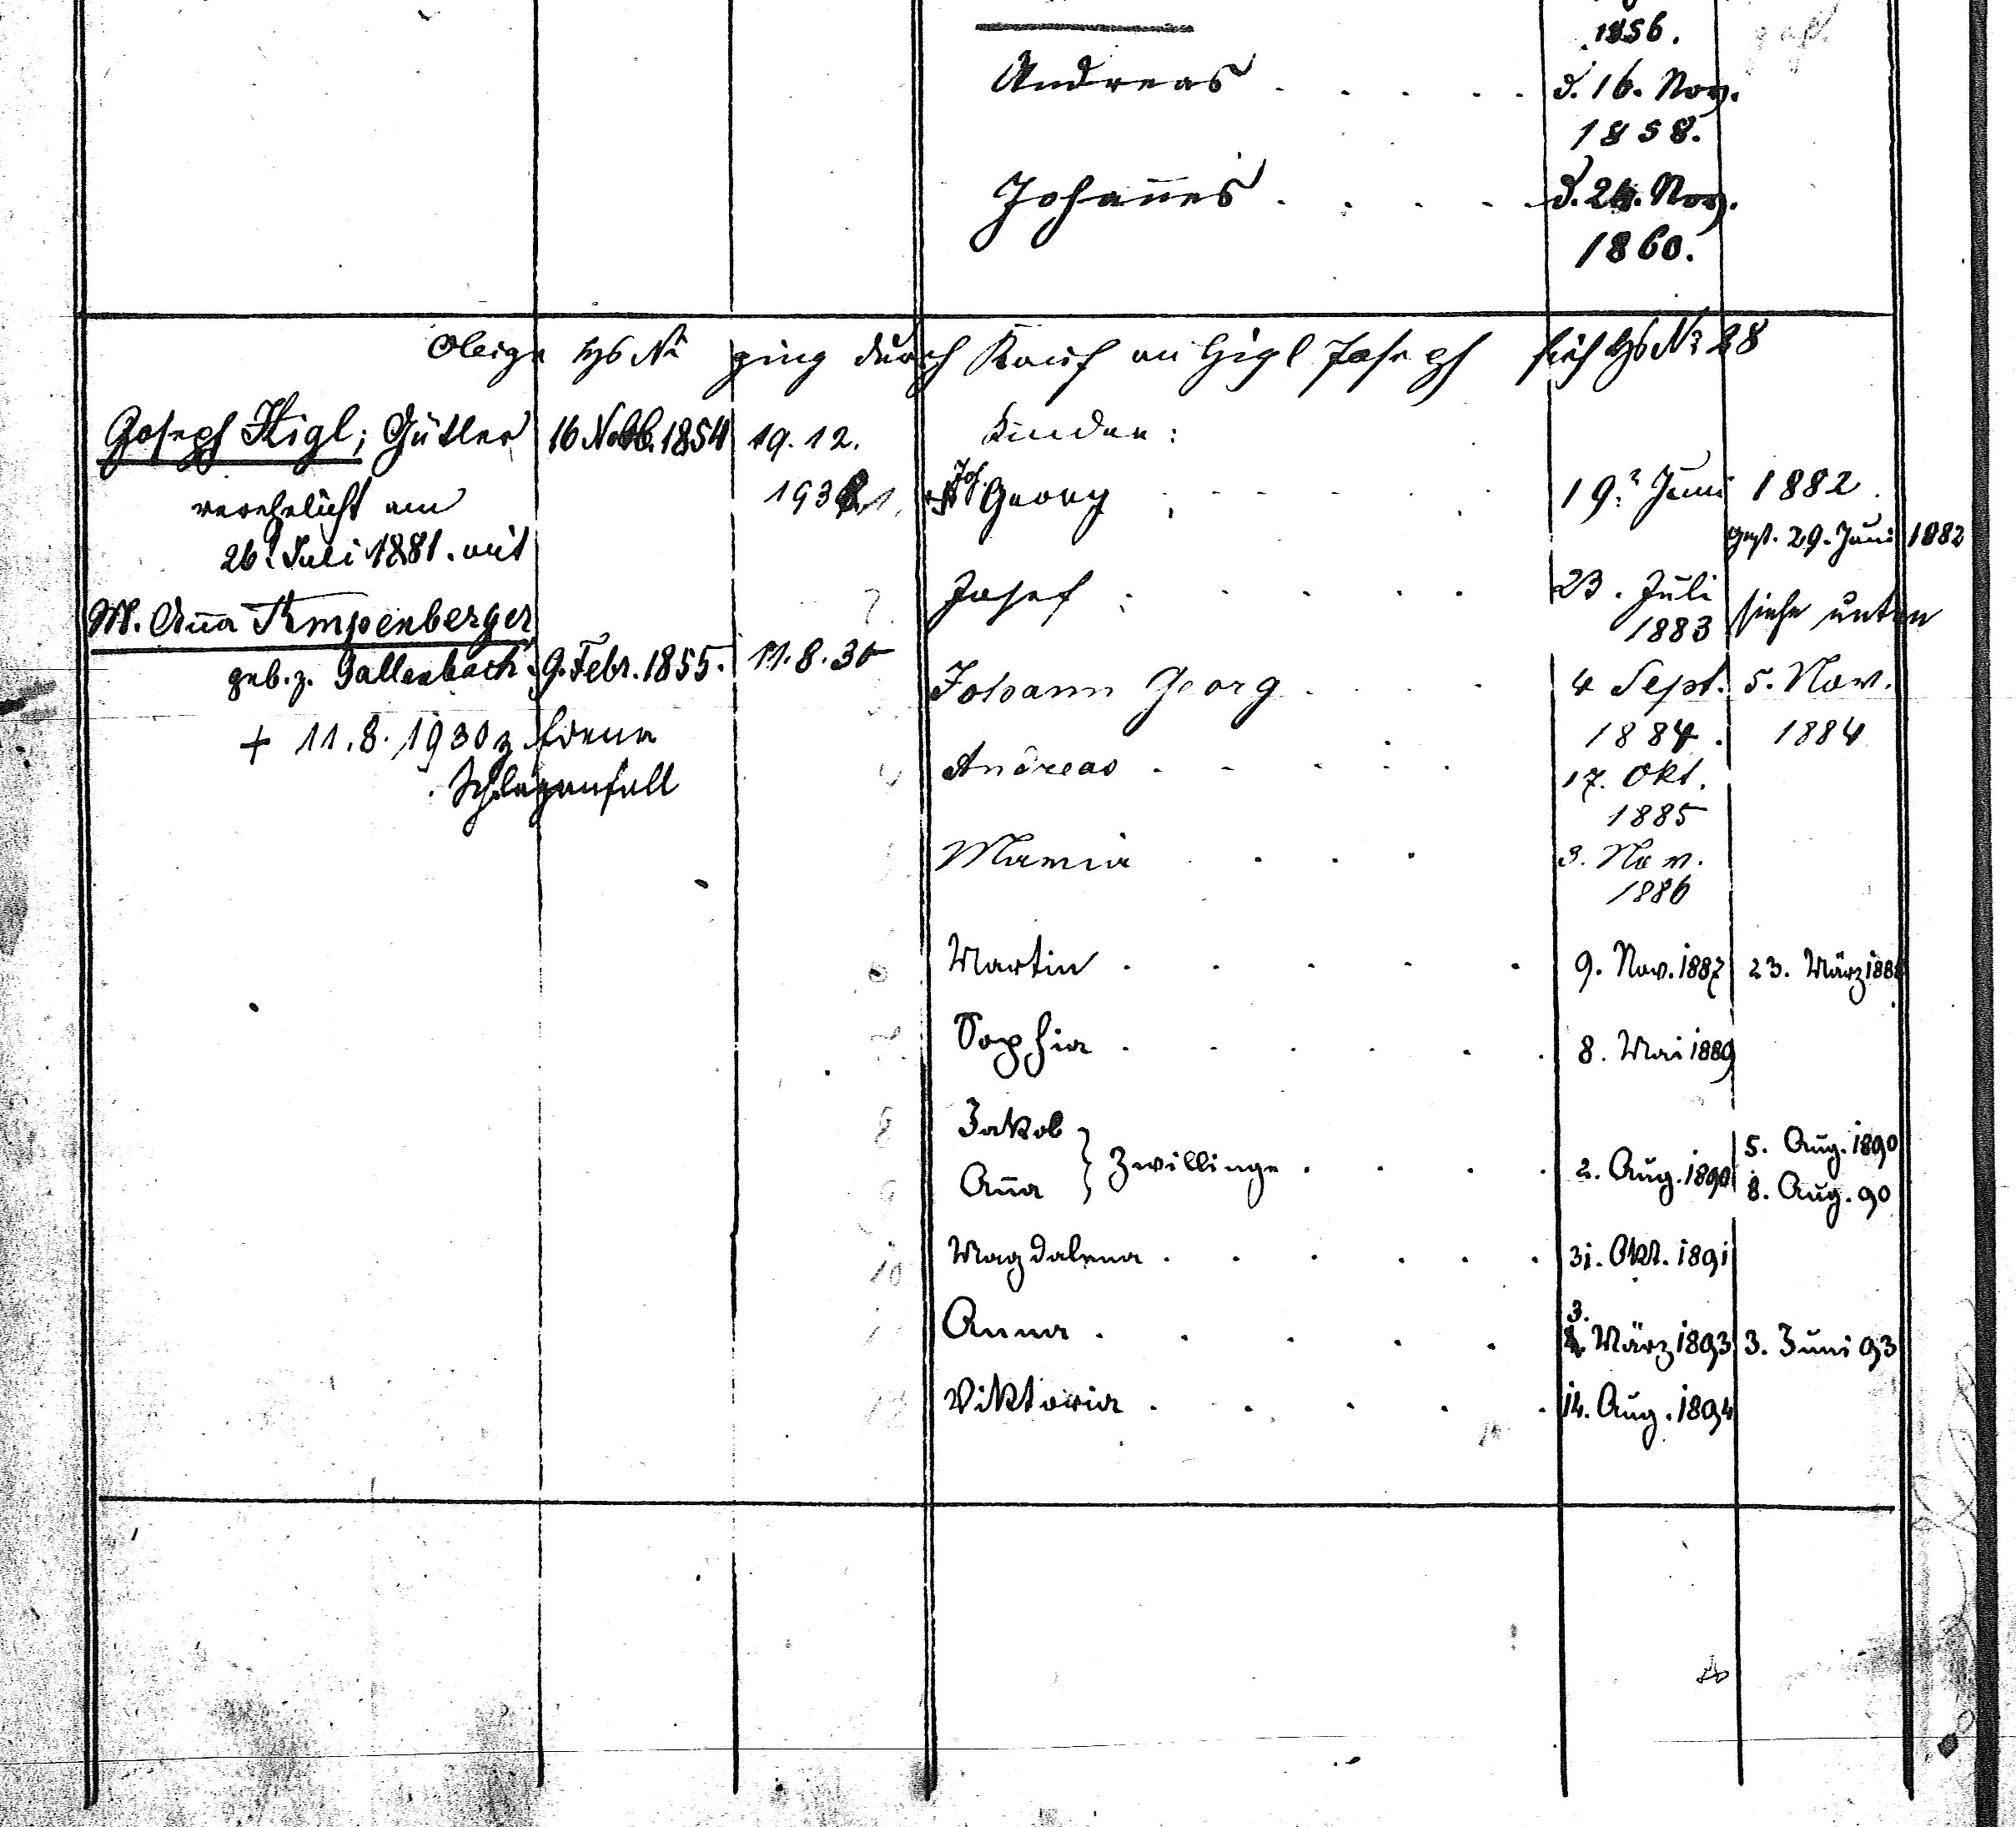 1856. gest.
Andreas . . . . . d. 16. Nov.
1858.
Johannes . . . . . d. 24. Nov.
1860.
Obige Hs No ging durch Kauf an Higl Joseph sieh Hs No 28
Joseph Higl; Gütler 16 Novb. 1854 19. 12. Kinder:
Joh. Georg . . . . . 19. Juni 1882.
verehelicht am 1931.
gest. 29. Juni 1882
26. Juli 1881. mit
Josef . . . . . 23. Juli
1883 siehe unten
M. Anna Kempenberger
geb. z. Gallenbach. 9. Febr. 1855. 11. 8. 30
Johann Georg . . . . 4 Sept. 5. Nov.
1884. 1884
+ 11. 8. 1930 z
Schlaganfall
4 Andreas . . . . . 17. Okt.
1885
Maria . . . . 3. Nov.
1886
6 Martin . . . . . 9. Nov. 1887 23. März 1888
7. Sophia . . . . . . 8. Mai 1889
8 Jakob
9 Anna } Zwillinge . . . . 2. Aug. 1890
5. Aug. 1890
8. Aug. 90
10 Magdalena . . . . . . 31. Okt. 1891
Anna . . . . . 3. März 1893 3. Juni 93
12 Viktoria . . . . . 14. Aug. 1894